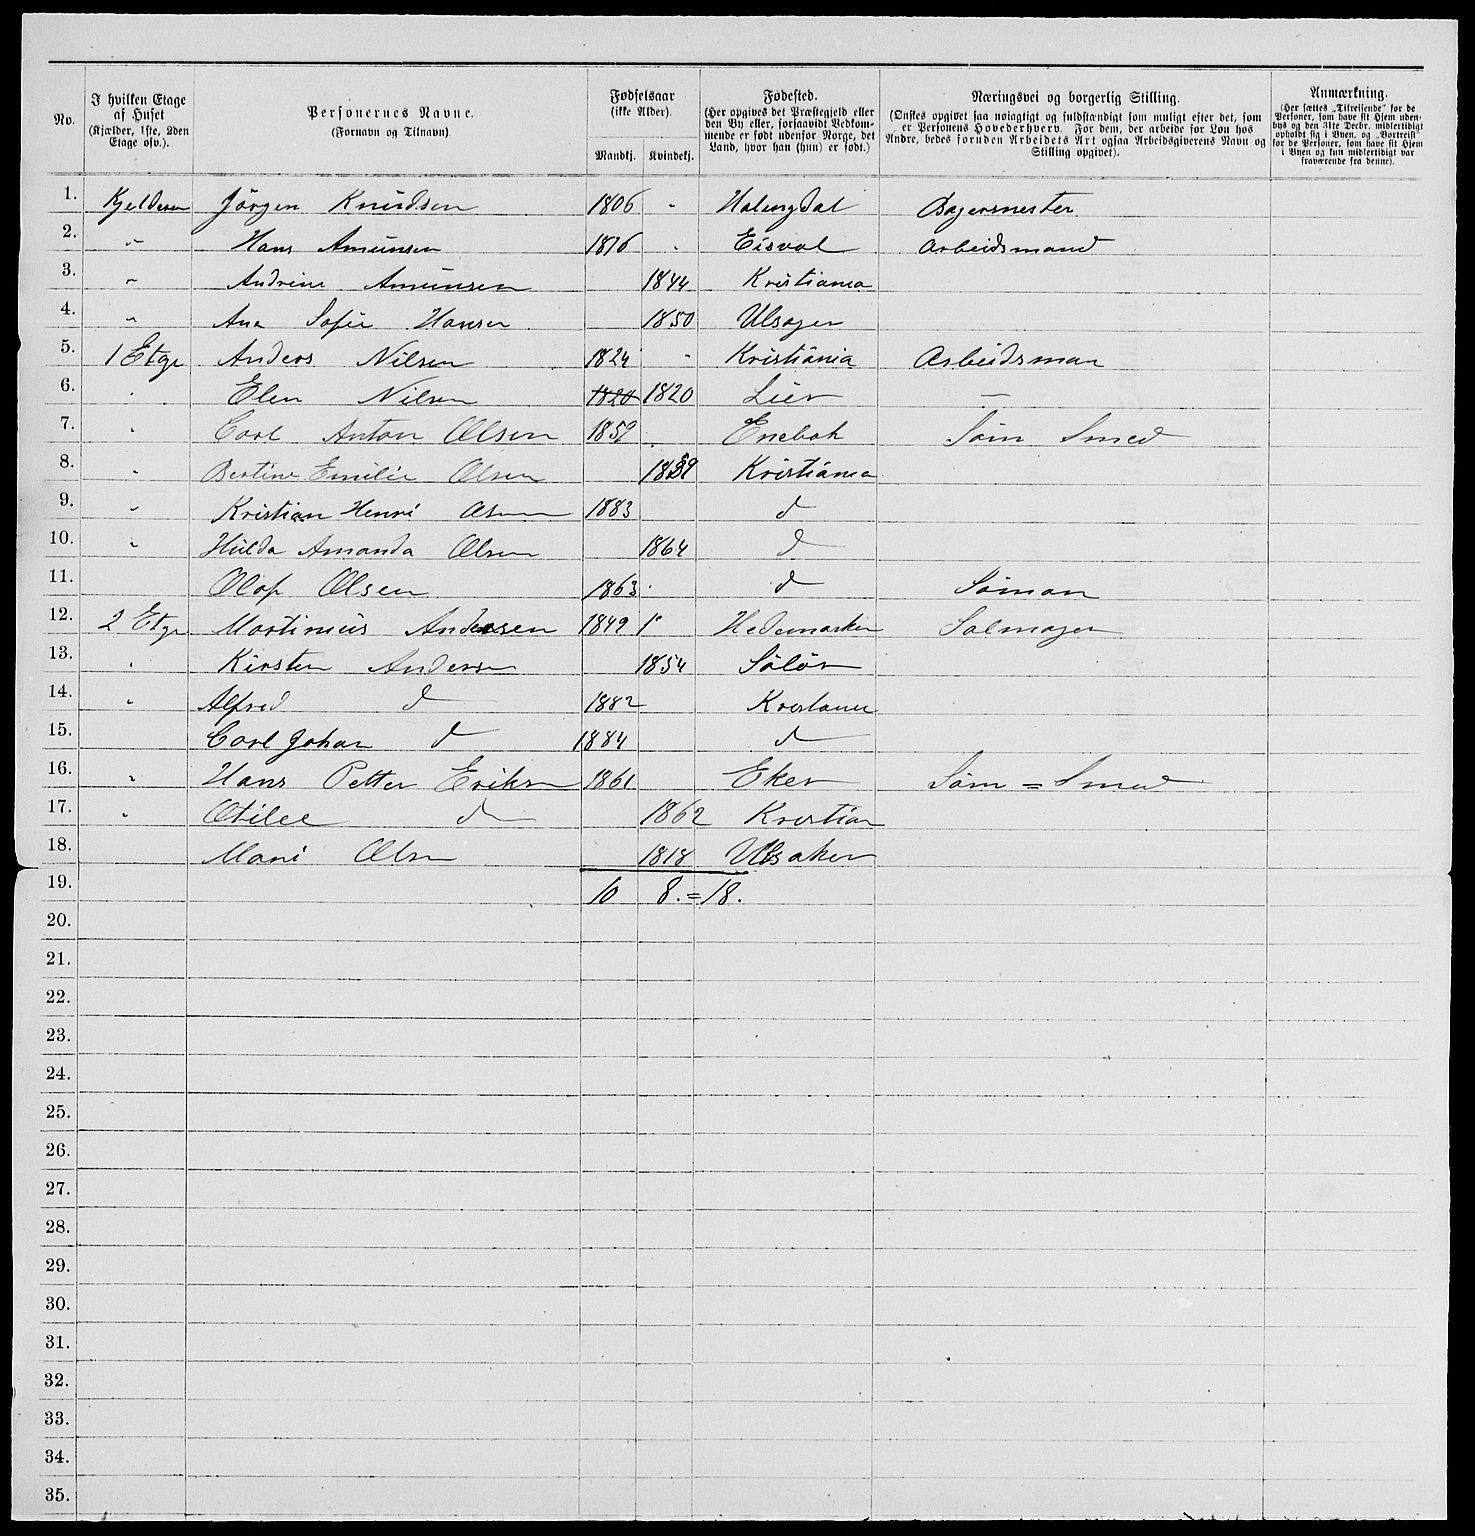 No.
I hvilken Etage
af Huset
(Kjælder, 1ste, 2den
Etage osv.).
Personernes Navne.
(Fornavn og Tilnavn)
Fødselsaar
(ikke Alder).
Mandkj. Kvindekj.
Fødested.
(Her opgives det Præstegjeld eller
den By eller, forsaavidt Vedkom-
mende er født udenfor Norge, det
Land, hvor han (hun) er født.)
Næringsvei og borgerlig Stilling.
(Ønskes opgivet saa nøiagtigt og fuldstændigt som muligt efter det, som
er Personens Hovederhverv. For dem, der arbeide for Løn hos
Andre, bedes foruden Arbeidets Art ogsaa Arbeidsgiverens Navn og
Stilling opgivet).
Anmærkning.
(Her sættes „Tilreisende“ for de
Personer, som have sit Hjem uden-
bys og den 31te Decbr. midlertidigt
opholdt sig i Byen, og „Bortreist“
for de Personer, som have sit Hjem
i Byen og kun midlertidigt var
fraværende fra denne).
1. Kjelderen Jörgen Knudsen 1806 " Halingdal Bagermester
2. " Hans Amunsen 1816 " Eisvol Arbeidsmand
3. " Andrine Amunsen 1844 Kristiania
4. " Ana Sofie Hansen 1850 Ulsager
5. 1 Etge Anders Nilsen 1824 " Kristiania Arbeidsman
6. " Elen Nilsen 1820 1820 Lier —
7. " Carl Anton Olsen 1859 Enebak Söm Smed
8. " Bertine Emilie Olsen 1859 Kristiania
9. " Kristian Henri Olsen 1883 d
10. " Hulda Amanda Olsen 1864 d
11. Olaf Olsen 1863 d Söman
12. 2 Etge Martinius Andersen 1849 Hedemarken Salmager
13. " Kirsten Andersen 1854 Sölör
14. " Alfred d 1882 Kristania
15. Carl Johan d 1884 d
16. " Hans Petter Eriksn 1861 Eker Söm = Smed
17. " Otilee d 1862 Kristian
18. Mari Olsn 1818 Ulsaker
19. 10 8. = 18.
20.
21.
22.
23.
24.
25.
26.
27.
28.
29.
30.
31.
32.
33.
34.
35.